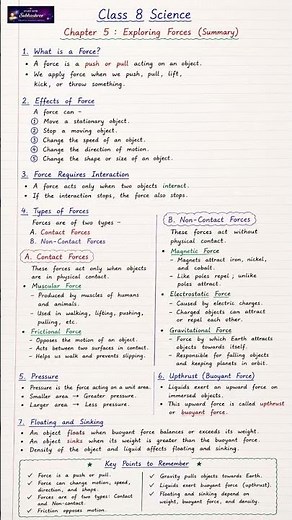 Class 8 Science
Chapter 5 : Exploring Forces (Summary)
1. What is a Force?
• A force is a push or pull acting on an object.
• We apply force when we push, pull, lift,
kick, or throw something.
2. Effects of Force
A force can -
① Move a stationary object.
② Stop a moving object.
③ Change the speed of an object.
④ Change the direction of motion.
⑤ Change the shape or size of an object.
3. Force Requires Interaction
• A force acts only when two objects interact.
• If the interaction stops, the force also stops.
4. Types of Forces
Forces are of two types -
A. Contact Forces
B. Non-Contact Forces
A. Contact Forces
These forces act only when objects
are in physical contact.
• Muscular Force
- Produced by muscles of humans
and animals.
- Used in walking, lifting, pushing,
pulling, etc.
• Frictional Force
- Opposes the motion of an object.
- Acts between two surfaces in contact.
- Helps us walk and prevents slipping.
B. Non-Contact Forces
These forces act without
physical contact.
• Magnetic Force
- Magnets attract iron, nickel,
and cobalt.
- Like poles repel, unlike
poles attract.
• Electrostatic Force
- Caused by electric charges.
- Charged objects can attract
or repel each other.
• Gravitational Force
- Force by which Earth attracts
objects towards itself.
- Responsible for falling objects
and keeping planets in orbit.
5. Pressure
• Pressure is the force acting on a unit area.
• Smaller area → Greater pressure.
• Larger area → Less pressure.
6. Upthrust (Buoyant Force)
• Liquids exert an upward force on
immersed objects.
• This upward force is called upthrust
or buoyant force.
7. Floating and Sinking
• An object floats when buoyant force balances or exceeds its weight.
• An object sinks when its weight is greater than the buoyant force.
• Density of the object and liquid affects floating and sinking.
★ Key Points to Remember ★
✓ Force is a push or pull.
✓ Force can change motion, speed,
direction, and shape.
✓ Forces are of two types: Contact
and Non-contact.
✓ Friction opposes motion.
✓ Gravity pulls objects towards Earth.
✓ Liquids exert buoyant force (upthrust).
✓ Floating and sinking depend on
weight, buoyant force, and density.